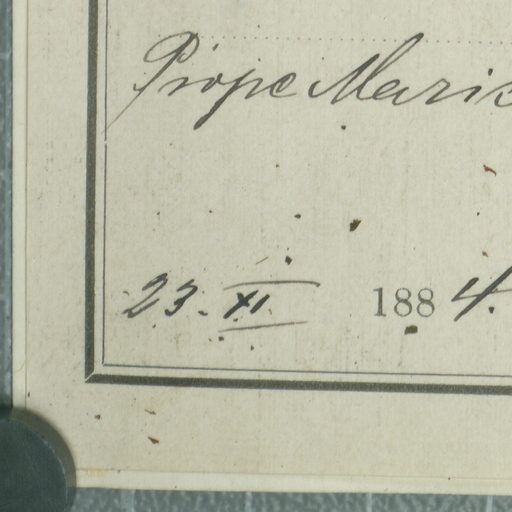 Prope Marie
23. XI 1884.